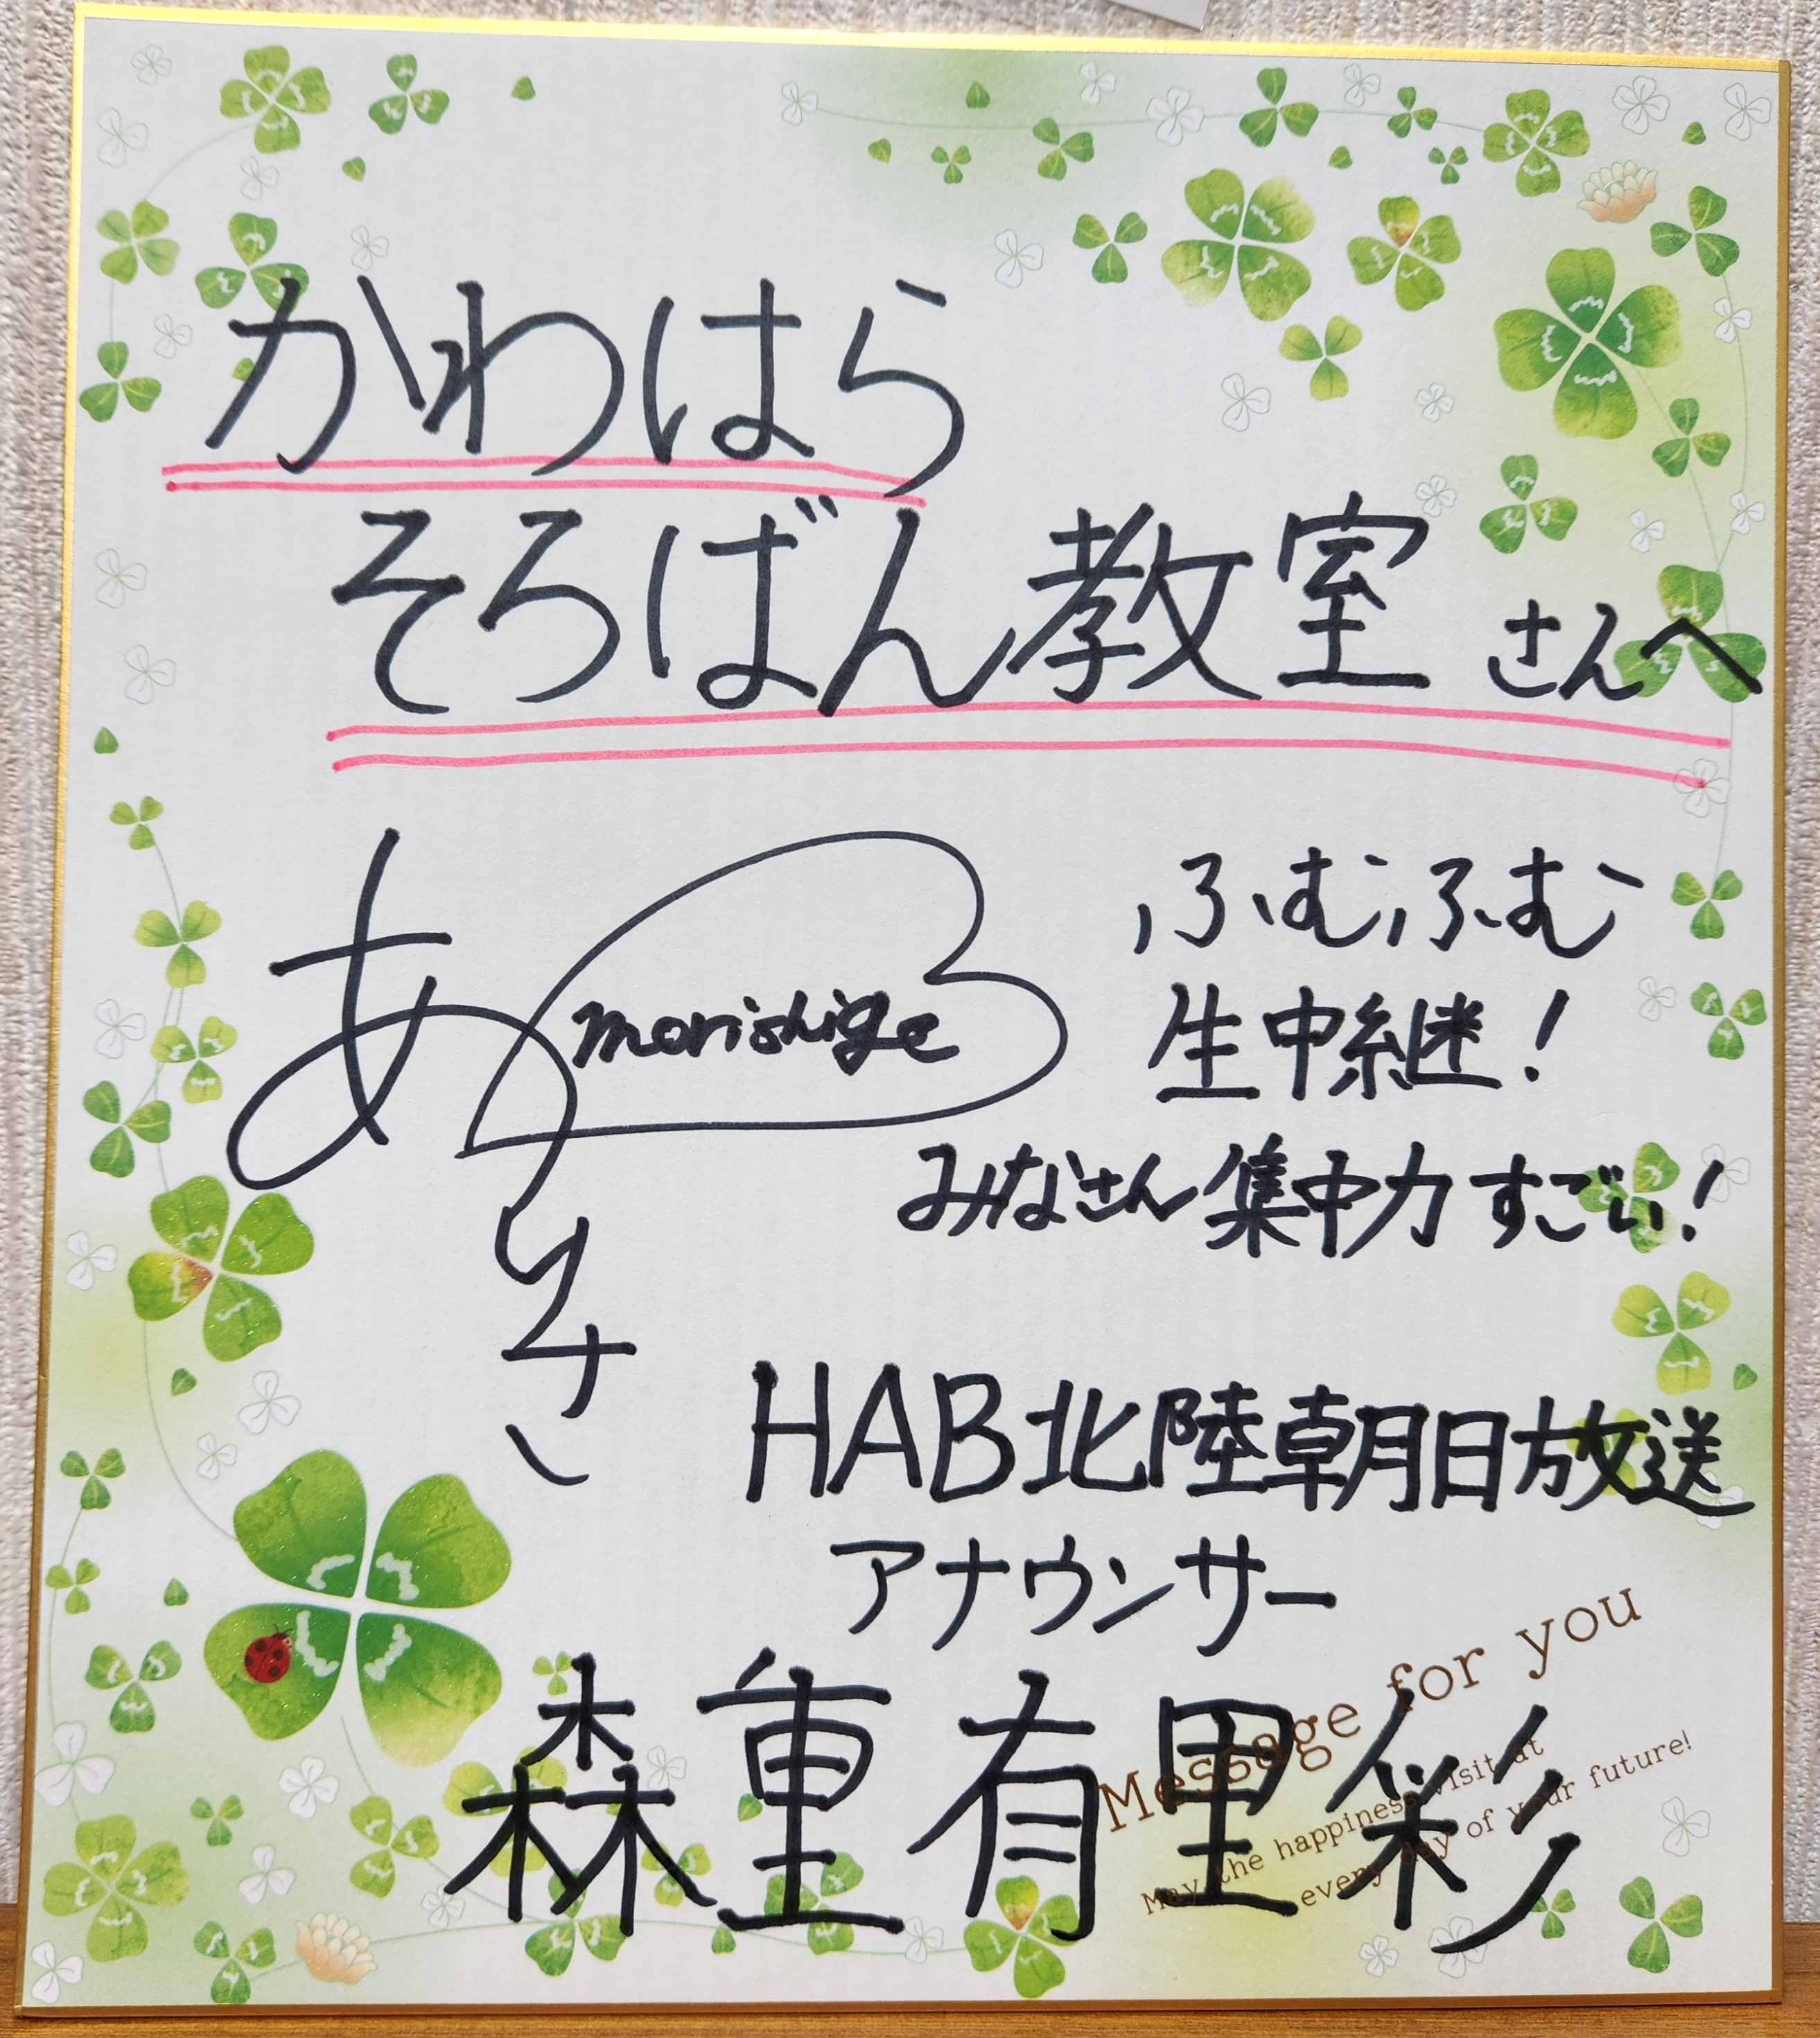 かわはら
そろばん教室さんへ
ありさ
morishige
ふむふむ
生中継！
みなさん集中力すごい！
HAB北陸朝日放送
アナウンサー
森重有里彩
Message for you
May the happiness visit at
every day of your future!